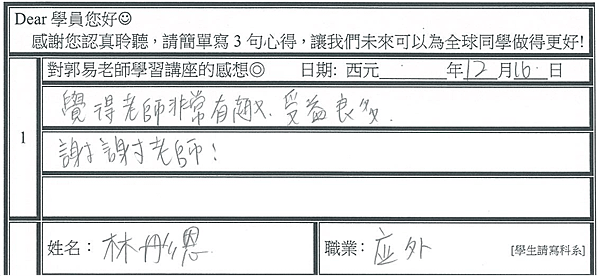 Dear 學員您好☺
感謝您認真聆聽，請簡單寫 3 句心得，讓我們未來可以為全球同學做得更好!
對郭易老師學習講座的感想◎ 日期: 西元______年12月16日
1
覺得老師非常有趣、受益良多.
謝謝老師!
姓名: 林彤恩 職業: 應外 [學生請寫科系]